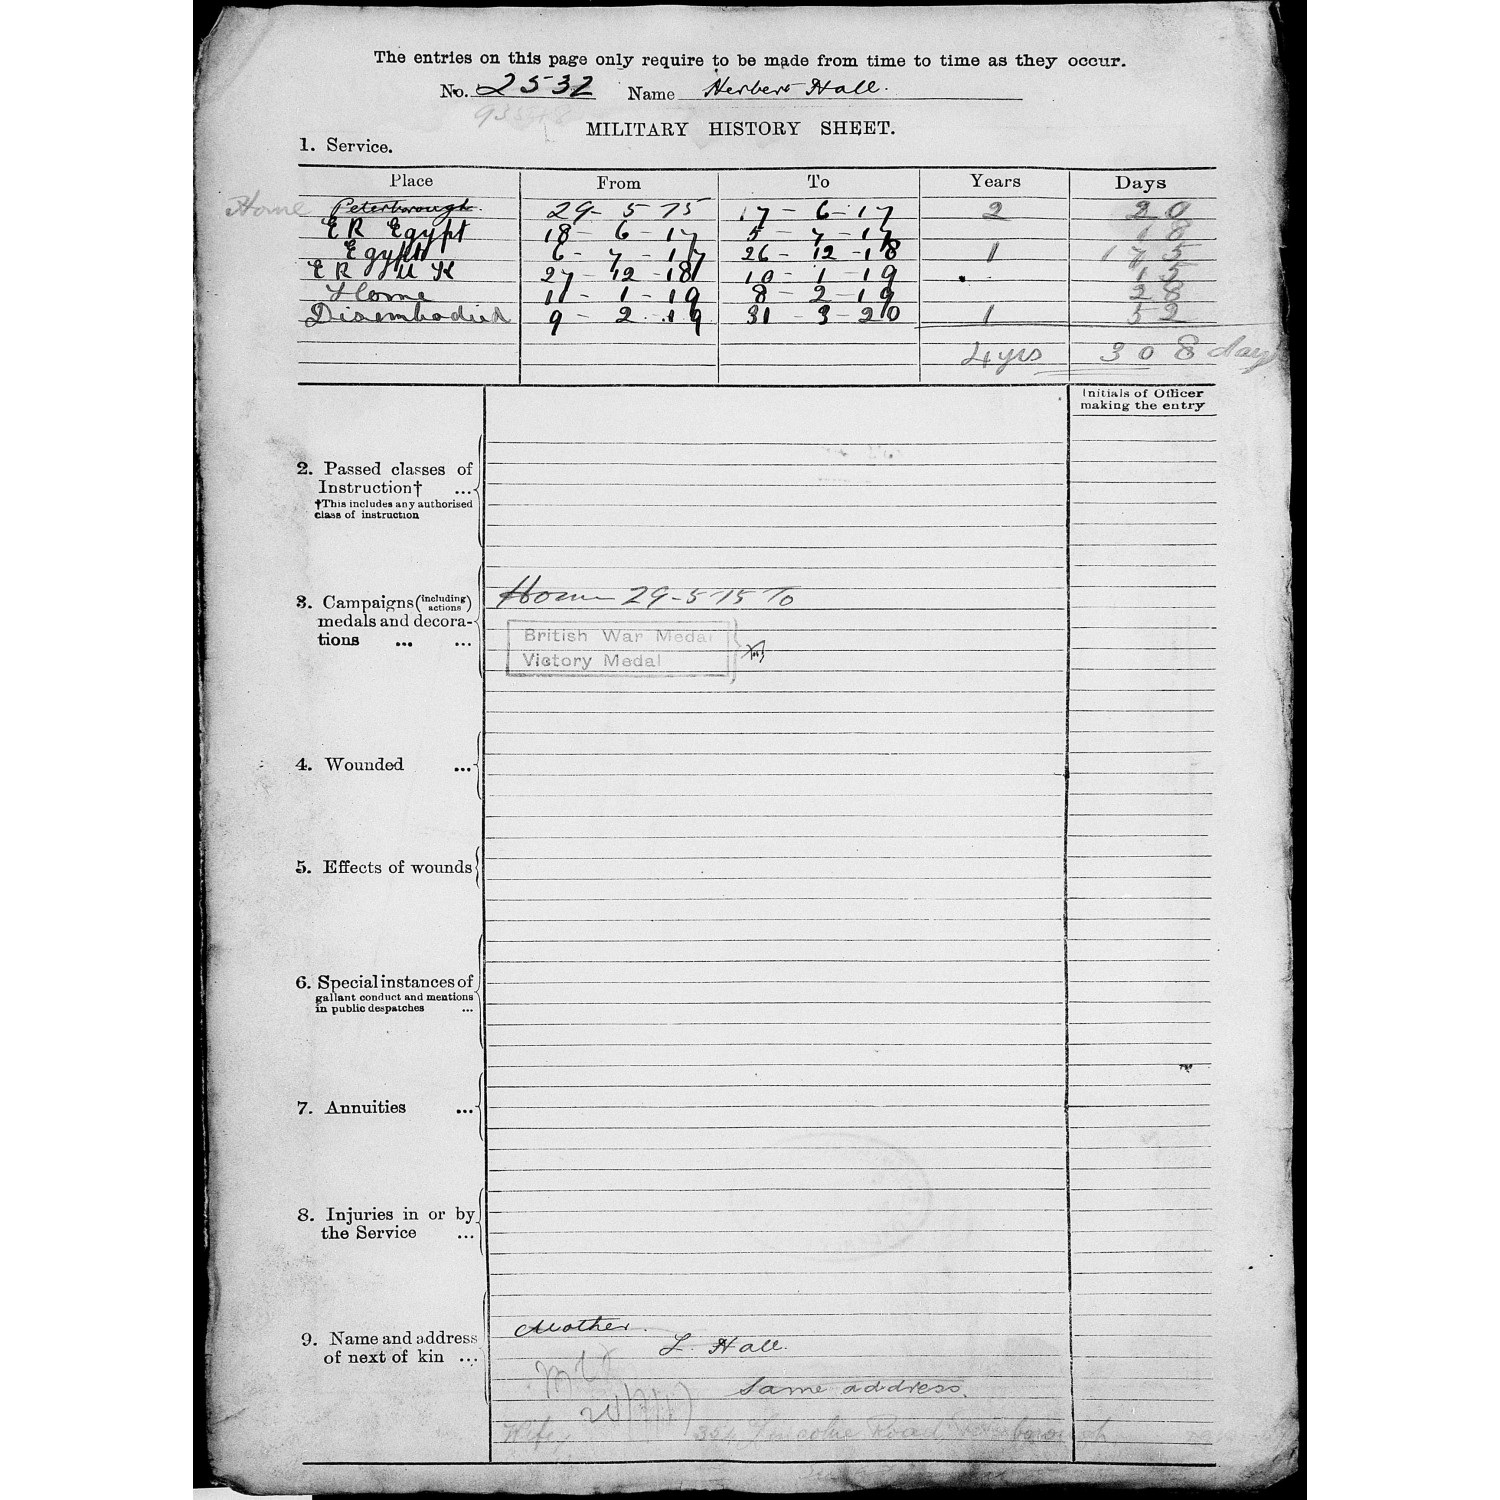 The entries on this page only require to be made from time to time as they occur.
No. 2532 Name Herbert Hall.
MILITARY HISTORY SHEET.
1. Service.
Place From To Years Days
Home Peterborough 29-5-15 17-6-17 2 20
ER Egypt 18-6-17 5-7-17 18
Egypt 6-7-17 26-12-18 1 175
ER UK 27-12-18 10-1-19 15
Home 11-1-19 8-2-19 28
Disembodied 9-2-19 31-3-20 1 52
4 yrs 308 days
Initials of Officer
making the entry
2. Passed classes of
Instruction† ...
†This includes any authorised
class of instruction
3. Campaigns (including actions) Home 29-5-15 To
medals and decora-
tions ... ...
British War Medal
Victory Medal
4. Wounded ...
5. Effects of wounds
6. Special instances of
gallant conduct and mentions
in public despatches ...
7. Annuities ...
8. Injuries in or by
the Service ...
9. Name and address
of next of kin ...
Mother.
L. Hall.
Same address.
Wife, Lincoln Road, Peterborough